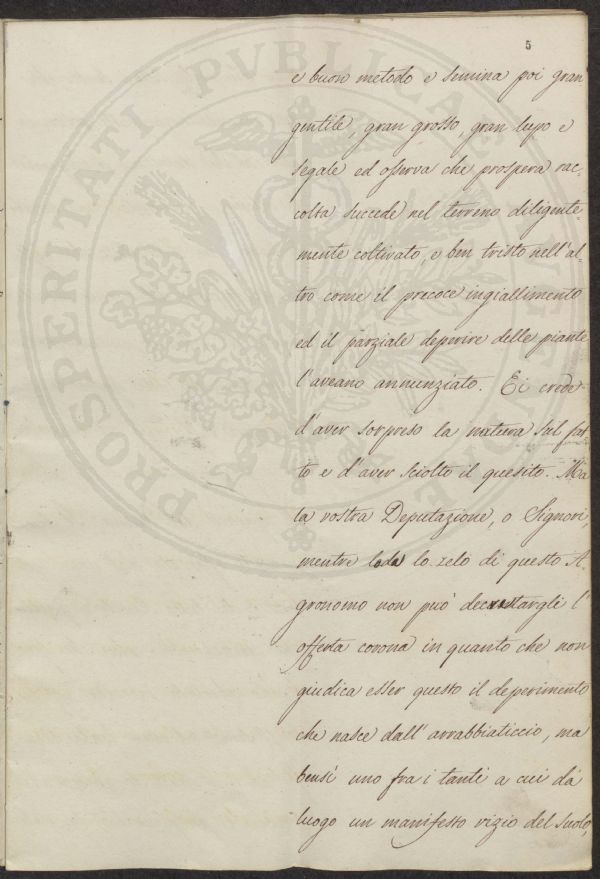 5
e buon metodo e semina poi gran
gentile, gran grosso, gran lupo e
segale ed osserva che prospera rac-
colta succede nel terreno diligente-
mente coltivato, e ben tristo nell'al-
tro come il precoce ingiallimento
ed il parziale deperire delle piante
l'aveano annunziato. Ei crede
d'aver sorpreso la natura sul fat-
to e d'aver sciolto il quesito. Ma
la vostra Deputazione, o Signori,
mentre loda lo zelo di questo A-
gronomo non può decretargli l'
offerta corona in quanto che non
giudica esser questo il deperimento
che nasce dall'arrabbiaticcio, ma
bensì uno fra i tanti a cui dà
luogo un manifesto vizio del suolo,
PROSPERITATI PVBLICAE